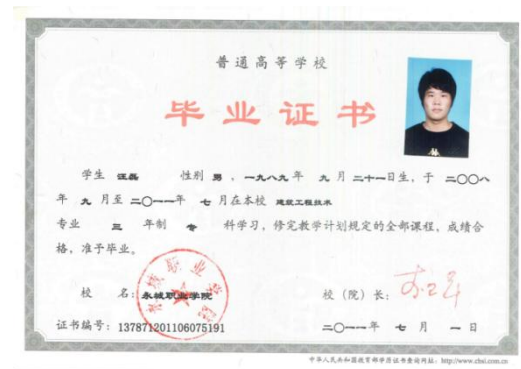 普通高等学校
毕业证书
学生 汪磊 性别 男，一九八九年 九 月 二十一日生，于 二〇〇八
年 九 月至 二〇一一年 七 月在本校 建筑工程技术
专业 三 年制 专 科学习，修完教学计划规定的全部课程，成绩合
格，准予毕业。
校 名：永城职业学院
校（院）长：
证书编号：137871201106075191
二〇一一年 七 月 一日
中华人民共和国教育部学历证书查询网址：http://www.chsi.com.cn